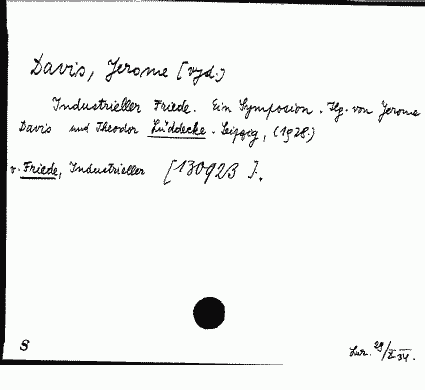 Davis, Jerome [vyd.)
Industrieller Friede. Ein Symposion. Hg. von Jerome
Davis und Theodor Lüddecke. Leipzig, (1928.)
v. Friede, Industrieller [130923].
S
29/X 34.